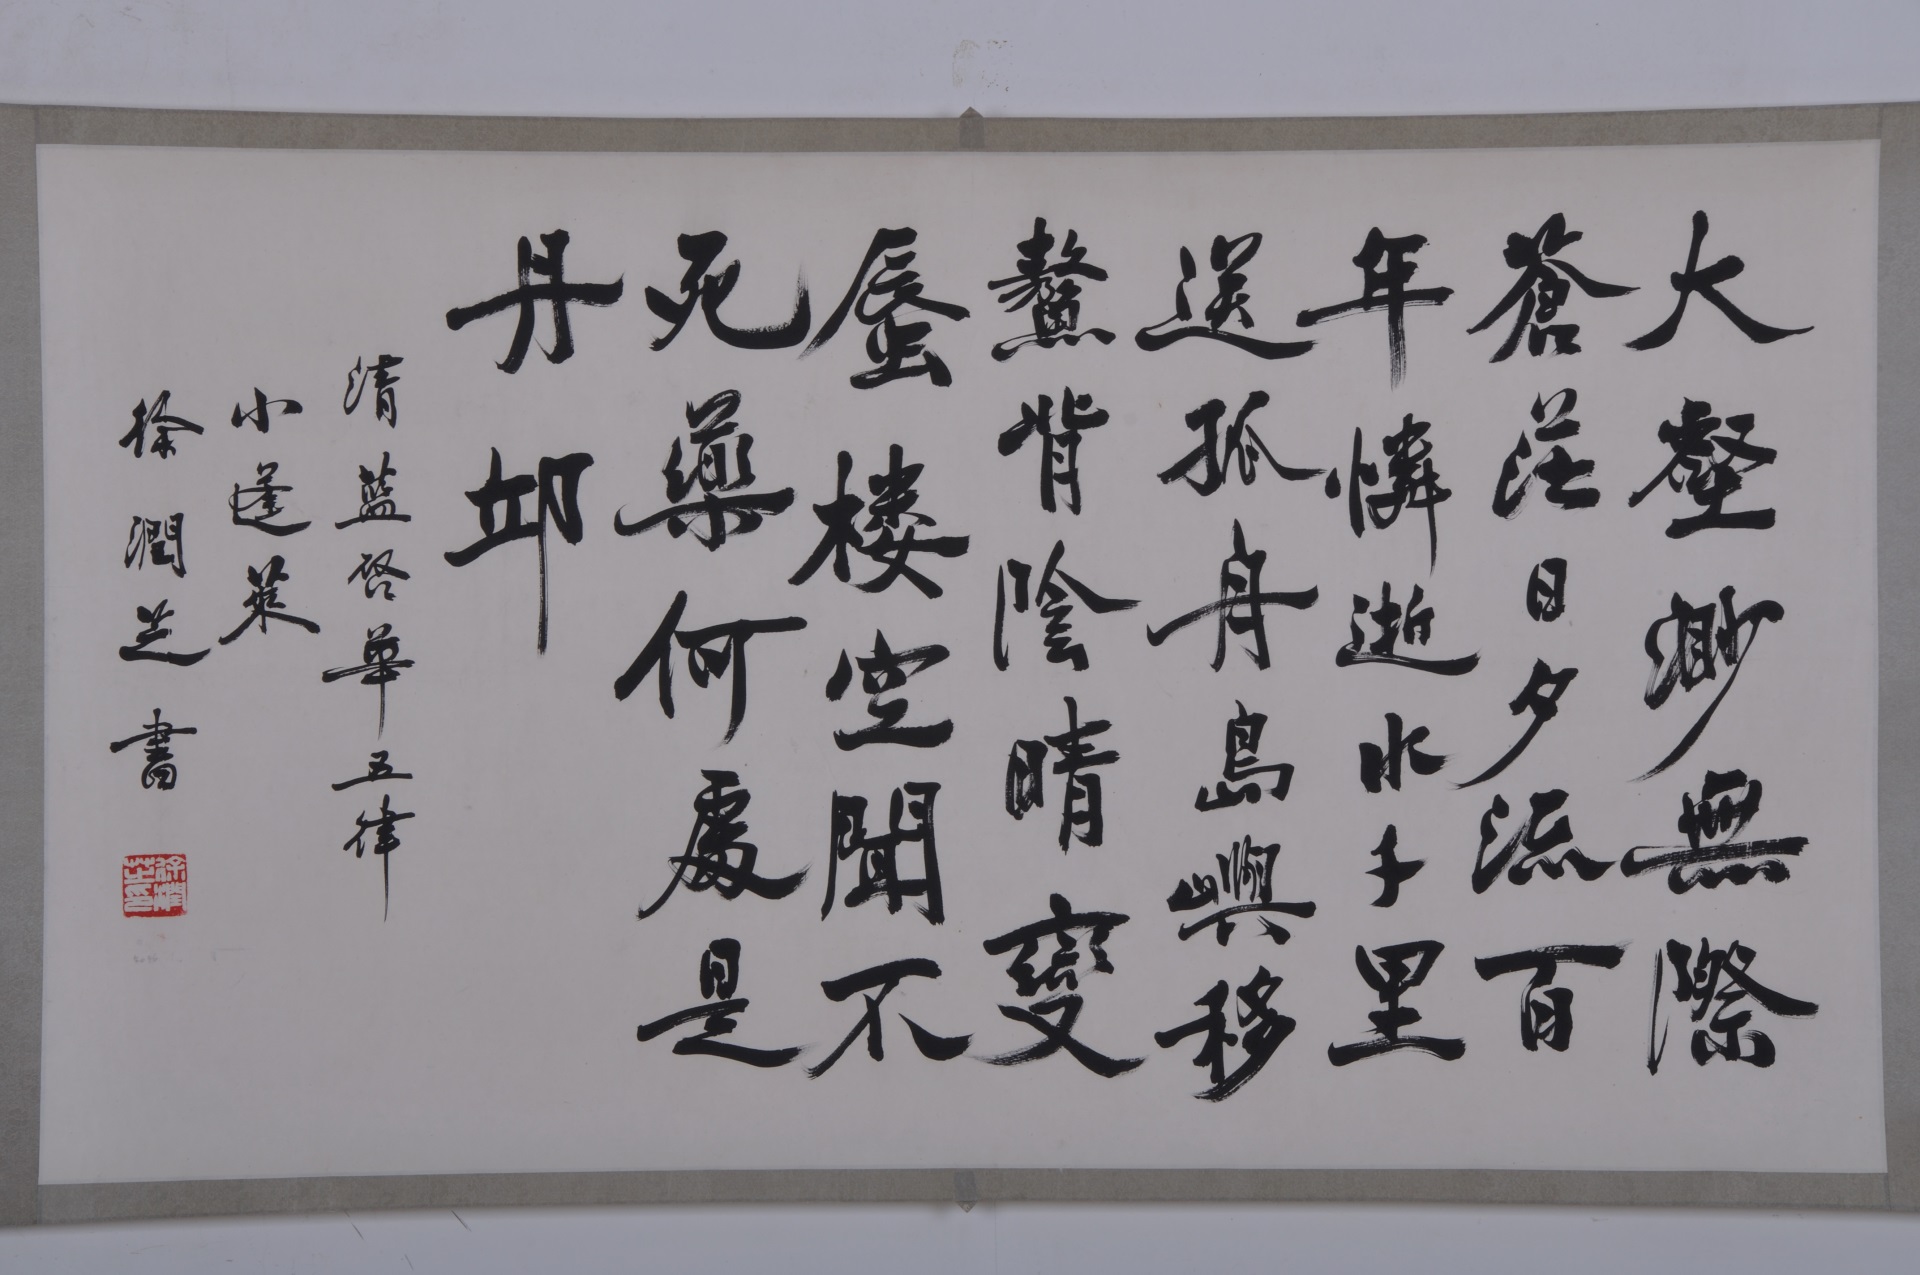 大壑渺無際
蒼茫日夕流百
年憐逝水千里
送孤舟島嶼移
鰲背陰晴變
蜃楼空聞不
死藥何處是
丹邱
清藍啓華五律
小蓬萊
徐潤芝書
徐潤芝印